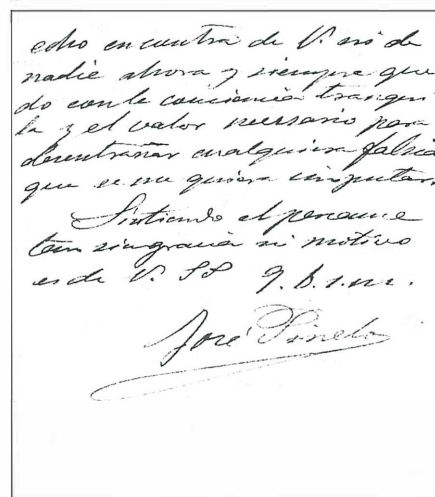 echo en cuentra de V. ni de
nadie ahora y siempre que
do con la conciencia tranqui
la y el valor nessario para
desentrañar cualquiera falsia
que se me quiera imputar.
Sintiendo el percance
tan sin gracia ni motivo
es de V. SS q.b.s.m.
José Pinelo